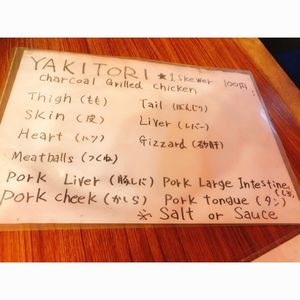 YAKITORI ★1 skewer 100円
charcoal Grilled chicken
Thigh (もも) Tail (ぼんじり)
Skin (皮) Liver (レバー)
Heart (ハツ) Gizzard (砂肝)
Meatballs (つくね)
Pork Liver Pork Large Intestine
Pork cheek (かしら) Pork tongue (タン)
※ Salt or Sauce